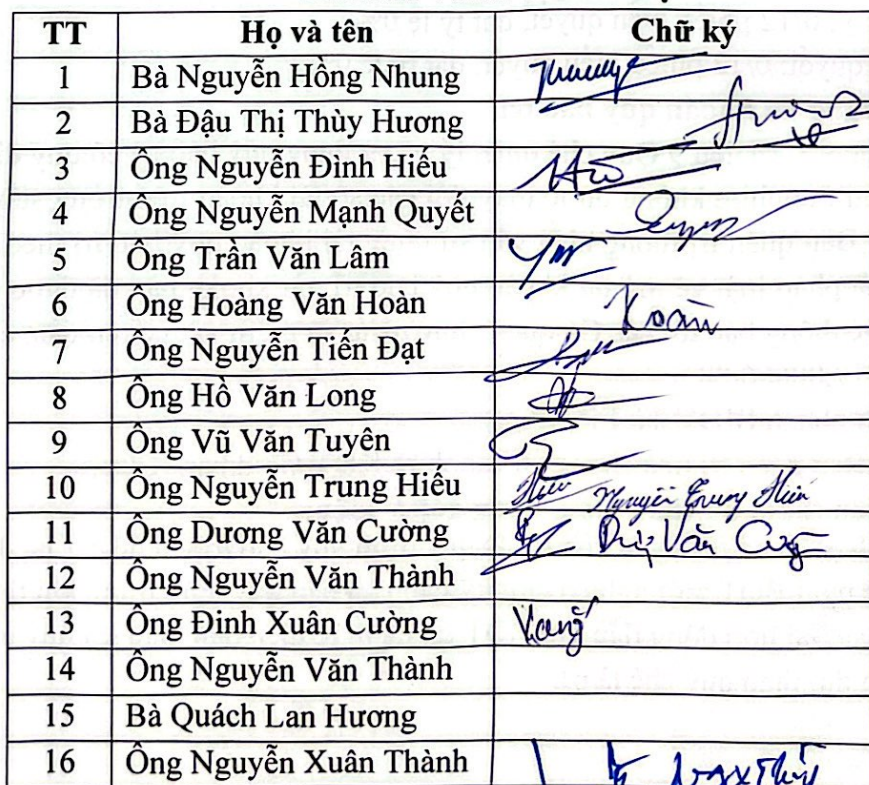 TT Họ và tên Chữ ký
1 Bà Nguyễn Hồng Nhung
2 Bà Đậu Thị Thùy Hương
3 Ông Nguyễn Đình Hiếu
4 Ông Nguyễn Mạnh Quyết
5 Ông Trần Văn Lâm
6 Ông Hoàng Văn Hoàn Hoàn
7 Ông Nguyễn Tiến Đạt
8 Ông Hồ Văn Long
9 Ông Vũ Văn Tuyên
10 Ông Nguyễn Trung Hiếu Nguyễn Trung Hiếu
11 Ông Dương Văn Cường Văn
12 Ông Nguyễn Văn Thành
13 Ông Đinh Xuân Cường
14 Ông Nguyễn Văn Thành
15 Bà Quách Lan Hương
16 Ông Nguyễn Xuân Thành